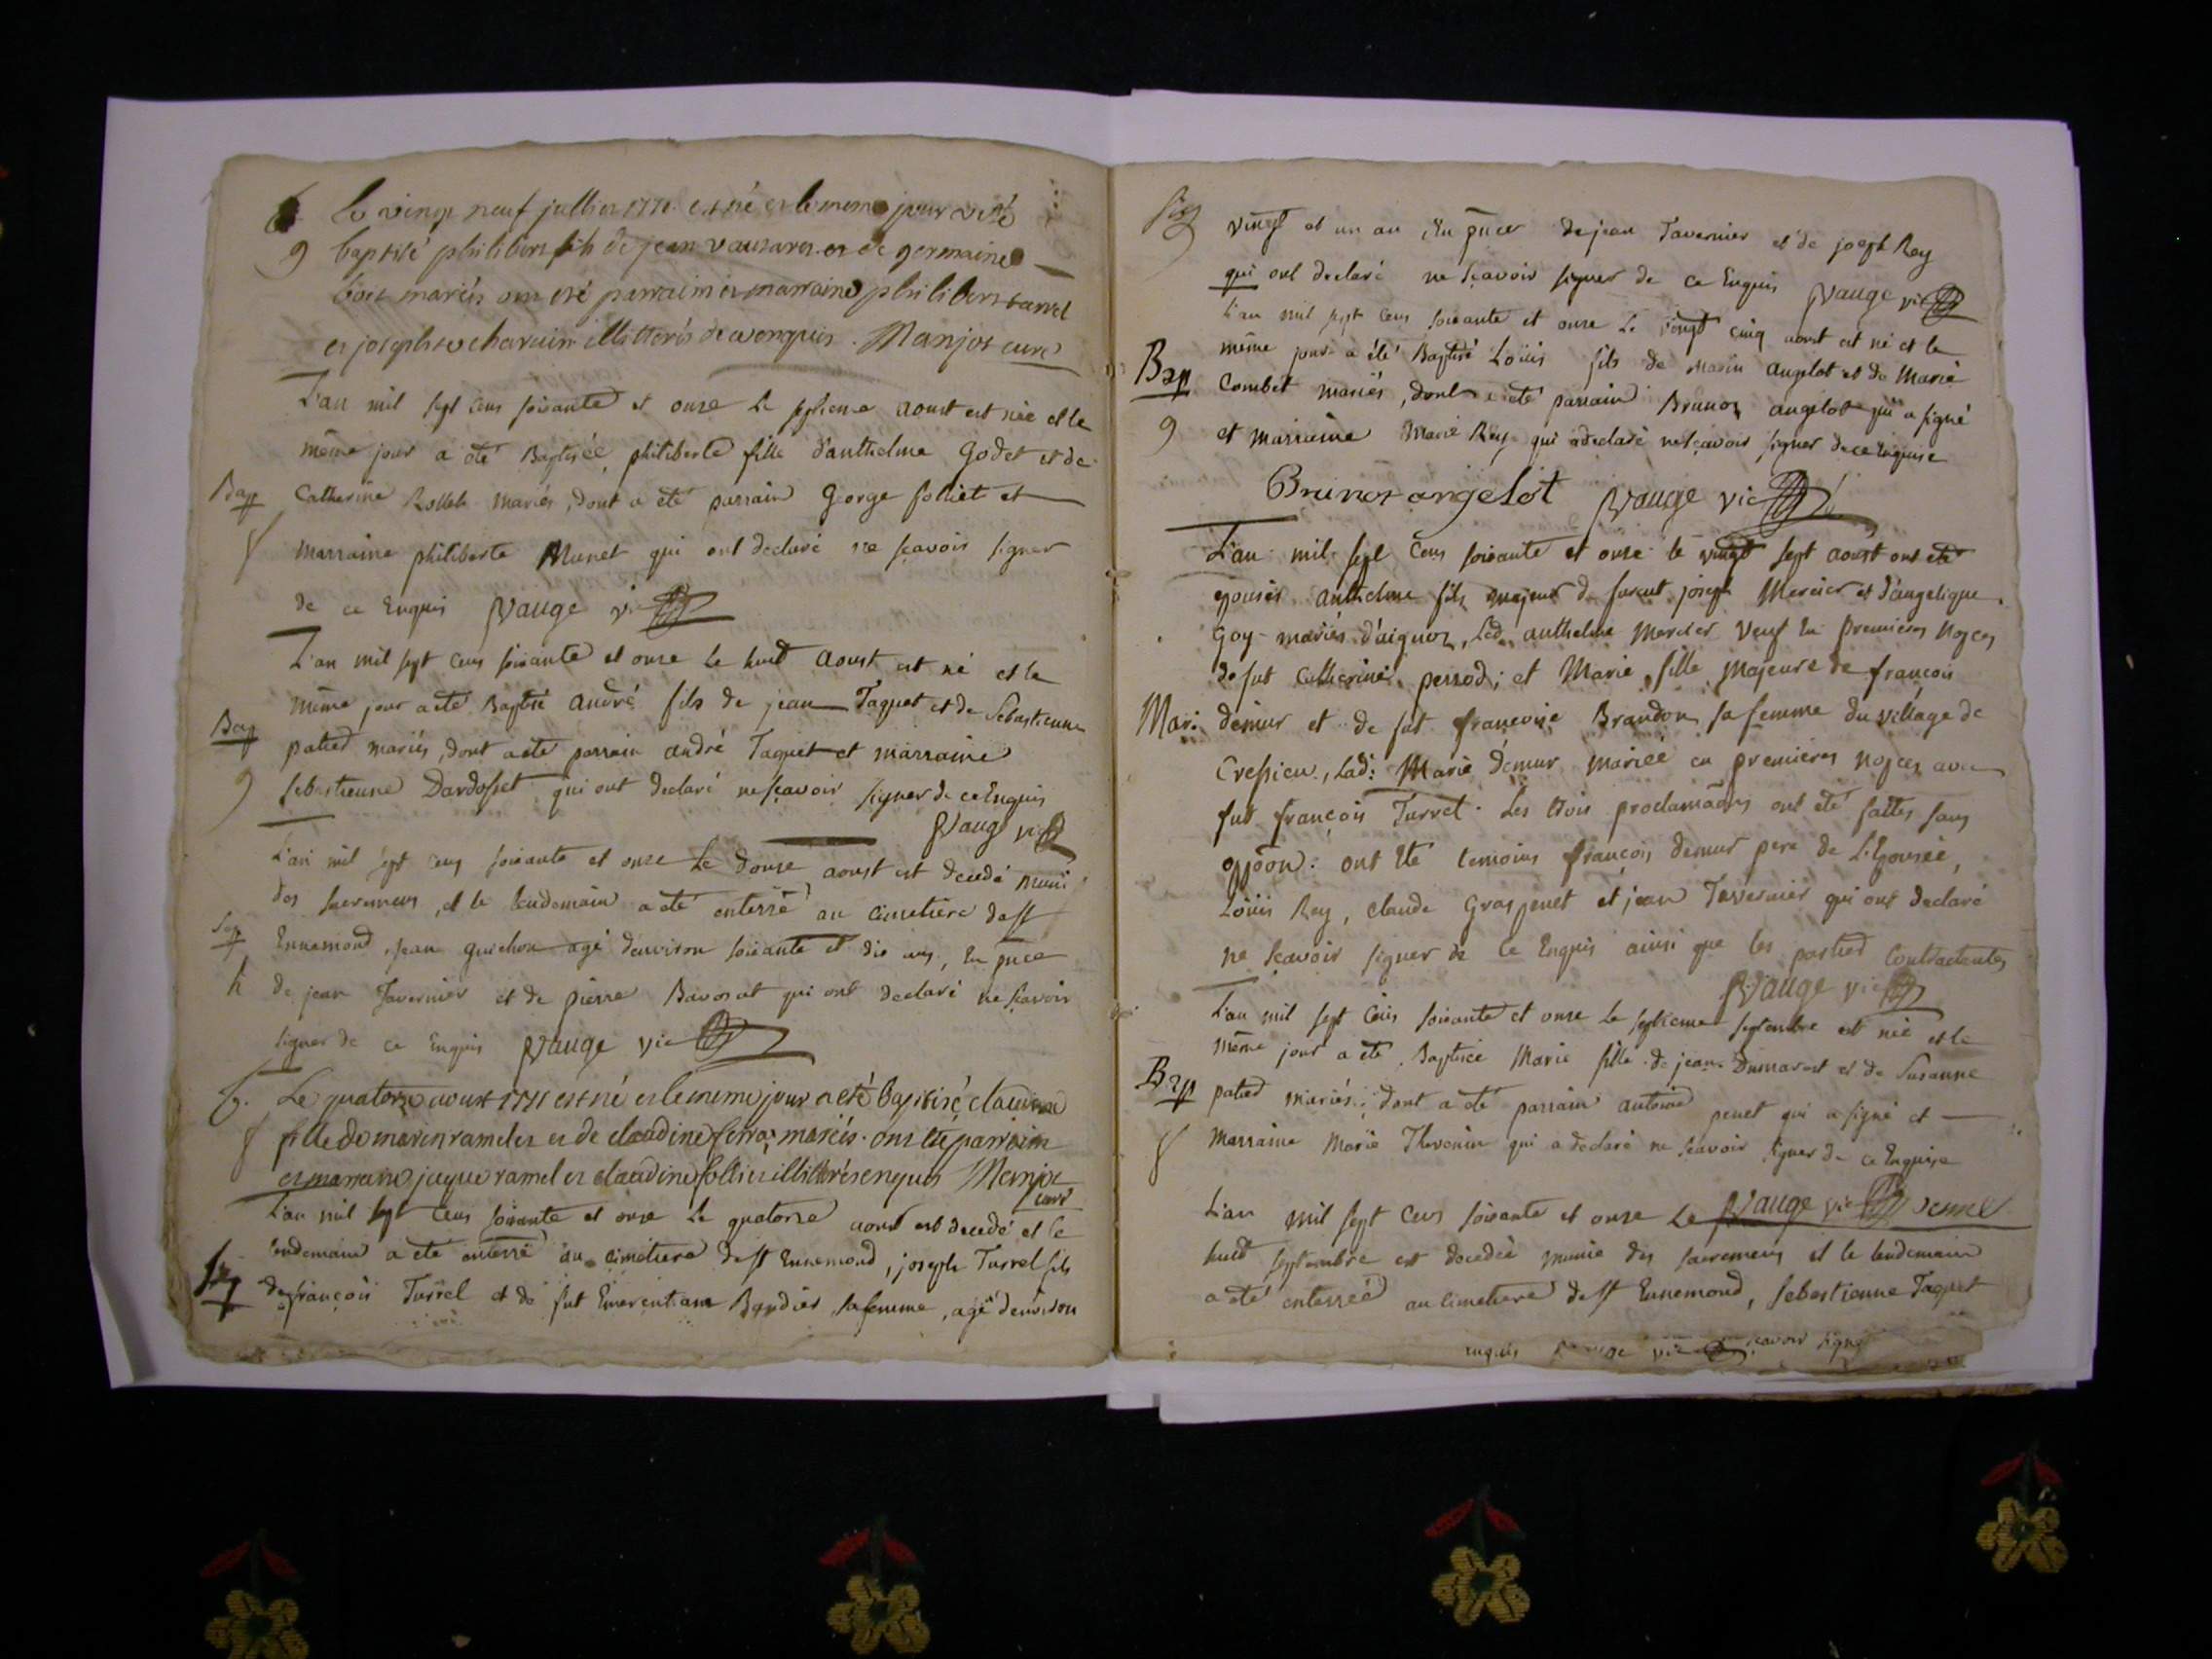 Le vingt neuf jullier 1771 est né et le meme jour a été
g baptisé philibert fils de jean vauzaret et de germaine
bois mariés ont été parrain et marraine philibert
et josephte charvin illitterés de ce enquis. Manjot curé
L'an mil sept cens soixante et onze le septieme aoust est née et le
même jour a été Baptisée philiberte fille d'anthelme Godet et de
Bap Catherine Rollet mariés, dont a été parrain George folliet et
f marraine philiberte Munet qui ont declaré ne sçavoir signer
de ce Enquis JVauge vic
L'an mil sept cens soixante et onze le huit aoust est né et le
même jour a été Baptisé andré fils de jean Taquet et de Sebastienne
Bap patted mariés, dont a été parrain andré Taquet et marraine
g sebastienne Dardosset qui ont declaré ne sçavoir signer de ce Enquis
JVauge vic
L'an mil sept cens soixante et onze le douze aoust est decedé muni
des sacremens, et le lendemain a été enterré au cimetiere de st
Sep Ennemond, jean guichon agé d'environ soixante et dix ans, En pnce
h de jean Tavernier et de pierre Bavosat qui ont declaré ne sçavoir
signer de ce Enquis JVauge vic
b. Le quatorze aoust 1771 est né et le meme jour a eté Baptisé claudine
f fille de marin ramel et de claudine ferraz mariés. ont été parrain
et marraine jaque ramel et claudine follier illitterés enquis Manjot
curé
L'an mil sept cens soixante et onze le quatorze aoust est decedé et le
lendemain a été enterré au cimetiere de st Ennemond, joseph Turrel fils
Sep de françois Turrel et de fut Emerentiane Bardier sa femme, agé d'environ
Sep vingt et un an En pnce de jean Tavernier et de joseph Rey
qui ont declaré ne sçavoir signer de ce Enquis JVauge vic
L'an mil sept cens soixante et onze le vingt cinq aoust est né et le
même jour a été Baptisé Loüis fils de marin angelot et de Marie
Bap Combet mariés, dont a été parrain Brunot angelot qui a signé
g et marraine Marie Rey qui a declaré ne sçavoir signer de ce Enquise
Brunot angelot JVauge vic
L'an mil sept cens soixante et onze le vingt sept aoust ont eté
epousés anthelme fils majeur de furent joseph Mercier et d'angelique
Goy mariés d'aignoz, Led. anthelme Mercier veuf En premieres Noces
de fut Catherine perrod; et Marie fille majeure de françois
Mari. demur et de fut françoise Brandon sa femme du village de
Cressieu, Lad: Marie demur mariée en premieres noces avec
fut françois Turrel. Les trois proclamaõns ont été faittes sans
oppõon: ont Eté temoins françois demur pere de L'Epousée,
Loüis Rey, claude Grosjenet et jean Tavernier qui ont declaré
ne sçavoir signer de ce Enquis ainsi que les parties Contractantes
JVauge vic
L'an mil sept cens soixante et onze le septieme septembre est née et le
même jour a été Baptisée Marie fille de jean Dumarest et de Susanne
Bap patted mariés; dont a été parrain antoine penet qui a signé et
f marraine Marie Thevenin qui a declaré ne sçavoir signer de ce Enquise
JVauge vic penet
L'an mil sept cens soixante et onze le
huit septembre est decedée munie des sacremens et le lendemain
a été enterrée au cimetiere de st Ennemond, sebastienne Taquet
sçavoir signer
enquis JVauge vic